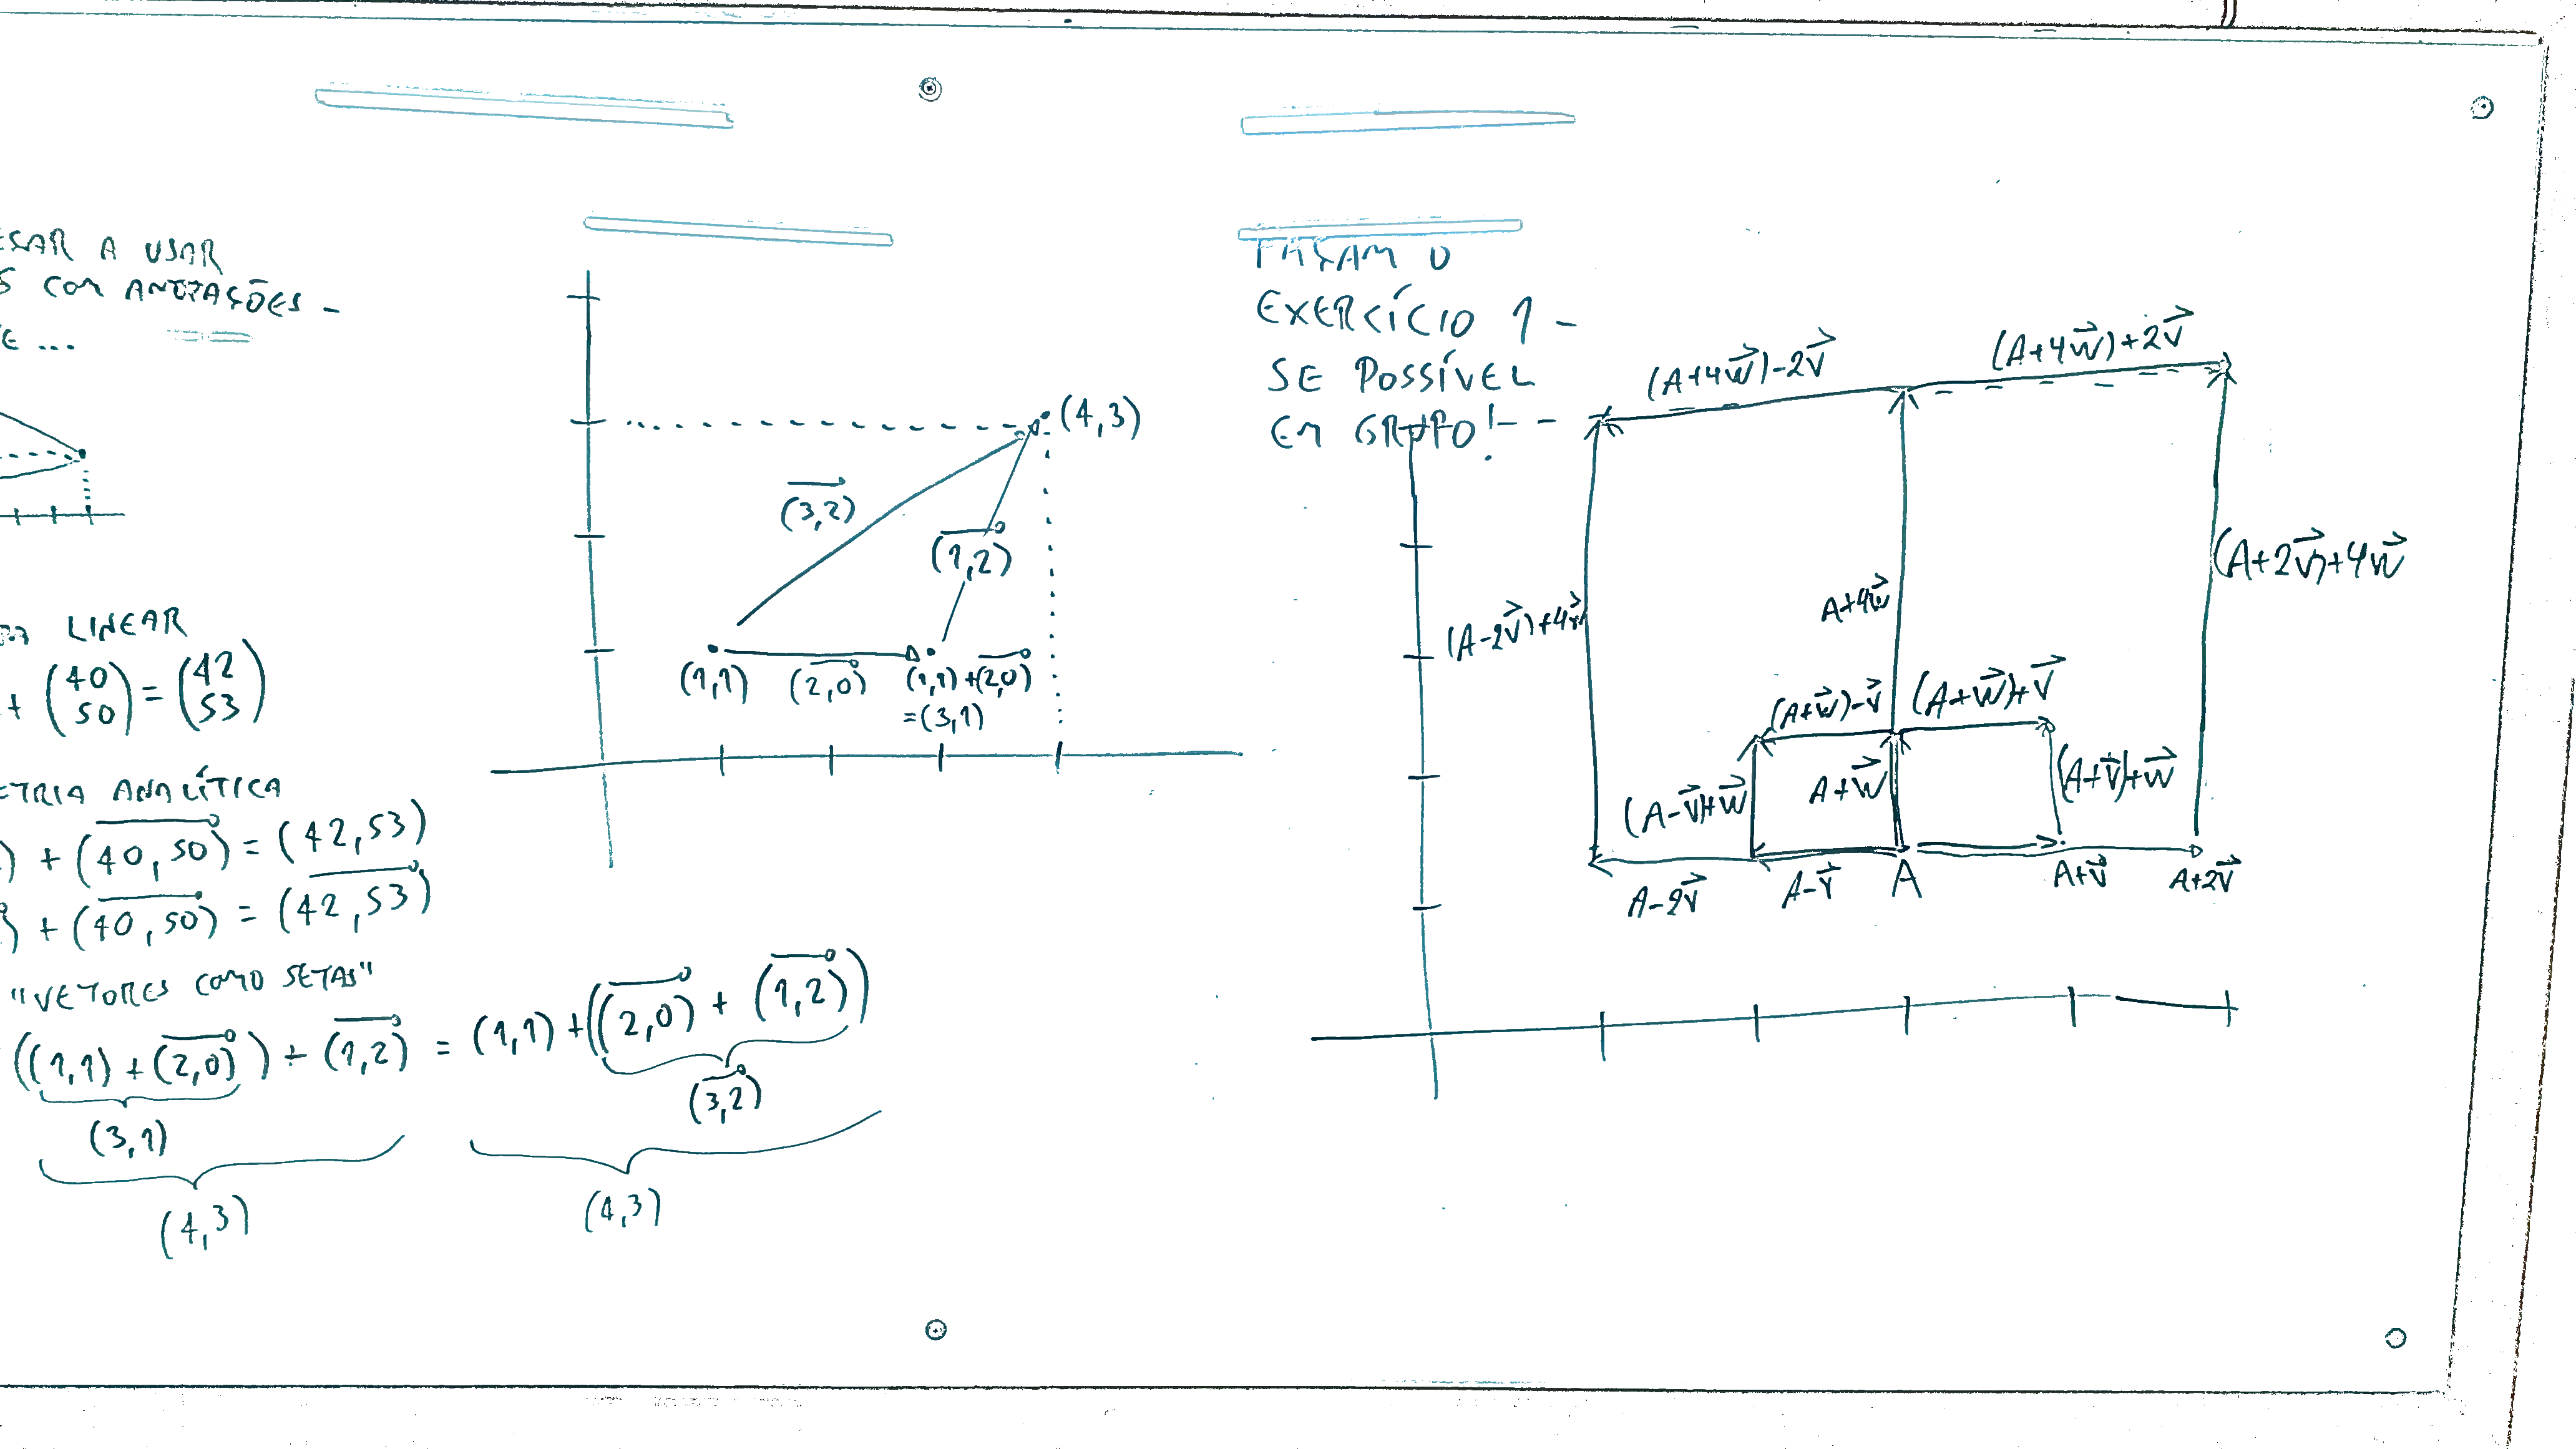 A USAR
S COM ANOTAÇÕES -
E ...
LINEAR
+ (40 50) = (42 53)
ETRIA ANALÍTICA
) + (40,50) = (42,53)
) + (40,50) = (42,53)
"VETORES COMO SETAS"
((1,1) + (2,0)) + (1,2) = (1,1) + ((2,0) + (1,2))
(3,1)
(3,2)
(4,3)
(4,3)
(4,3)
(3,2)
(1,2)
(1,1)
(2,0)
(1,1) + (2,0)
= (3,1)
FAÇAM O
EXERCÍCIO 1 -
SE POSSÍVEL
EM GRUPO!
(A+4w)-2v
(A+4w)+2v
(A-2v)+4w
A+4w
(A+2v)+4w
(A+w)-v
(A+w)+v
(A-v)+w
A+w
(A+v)+w
A-2v
A-v
A
A+v
A+2v